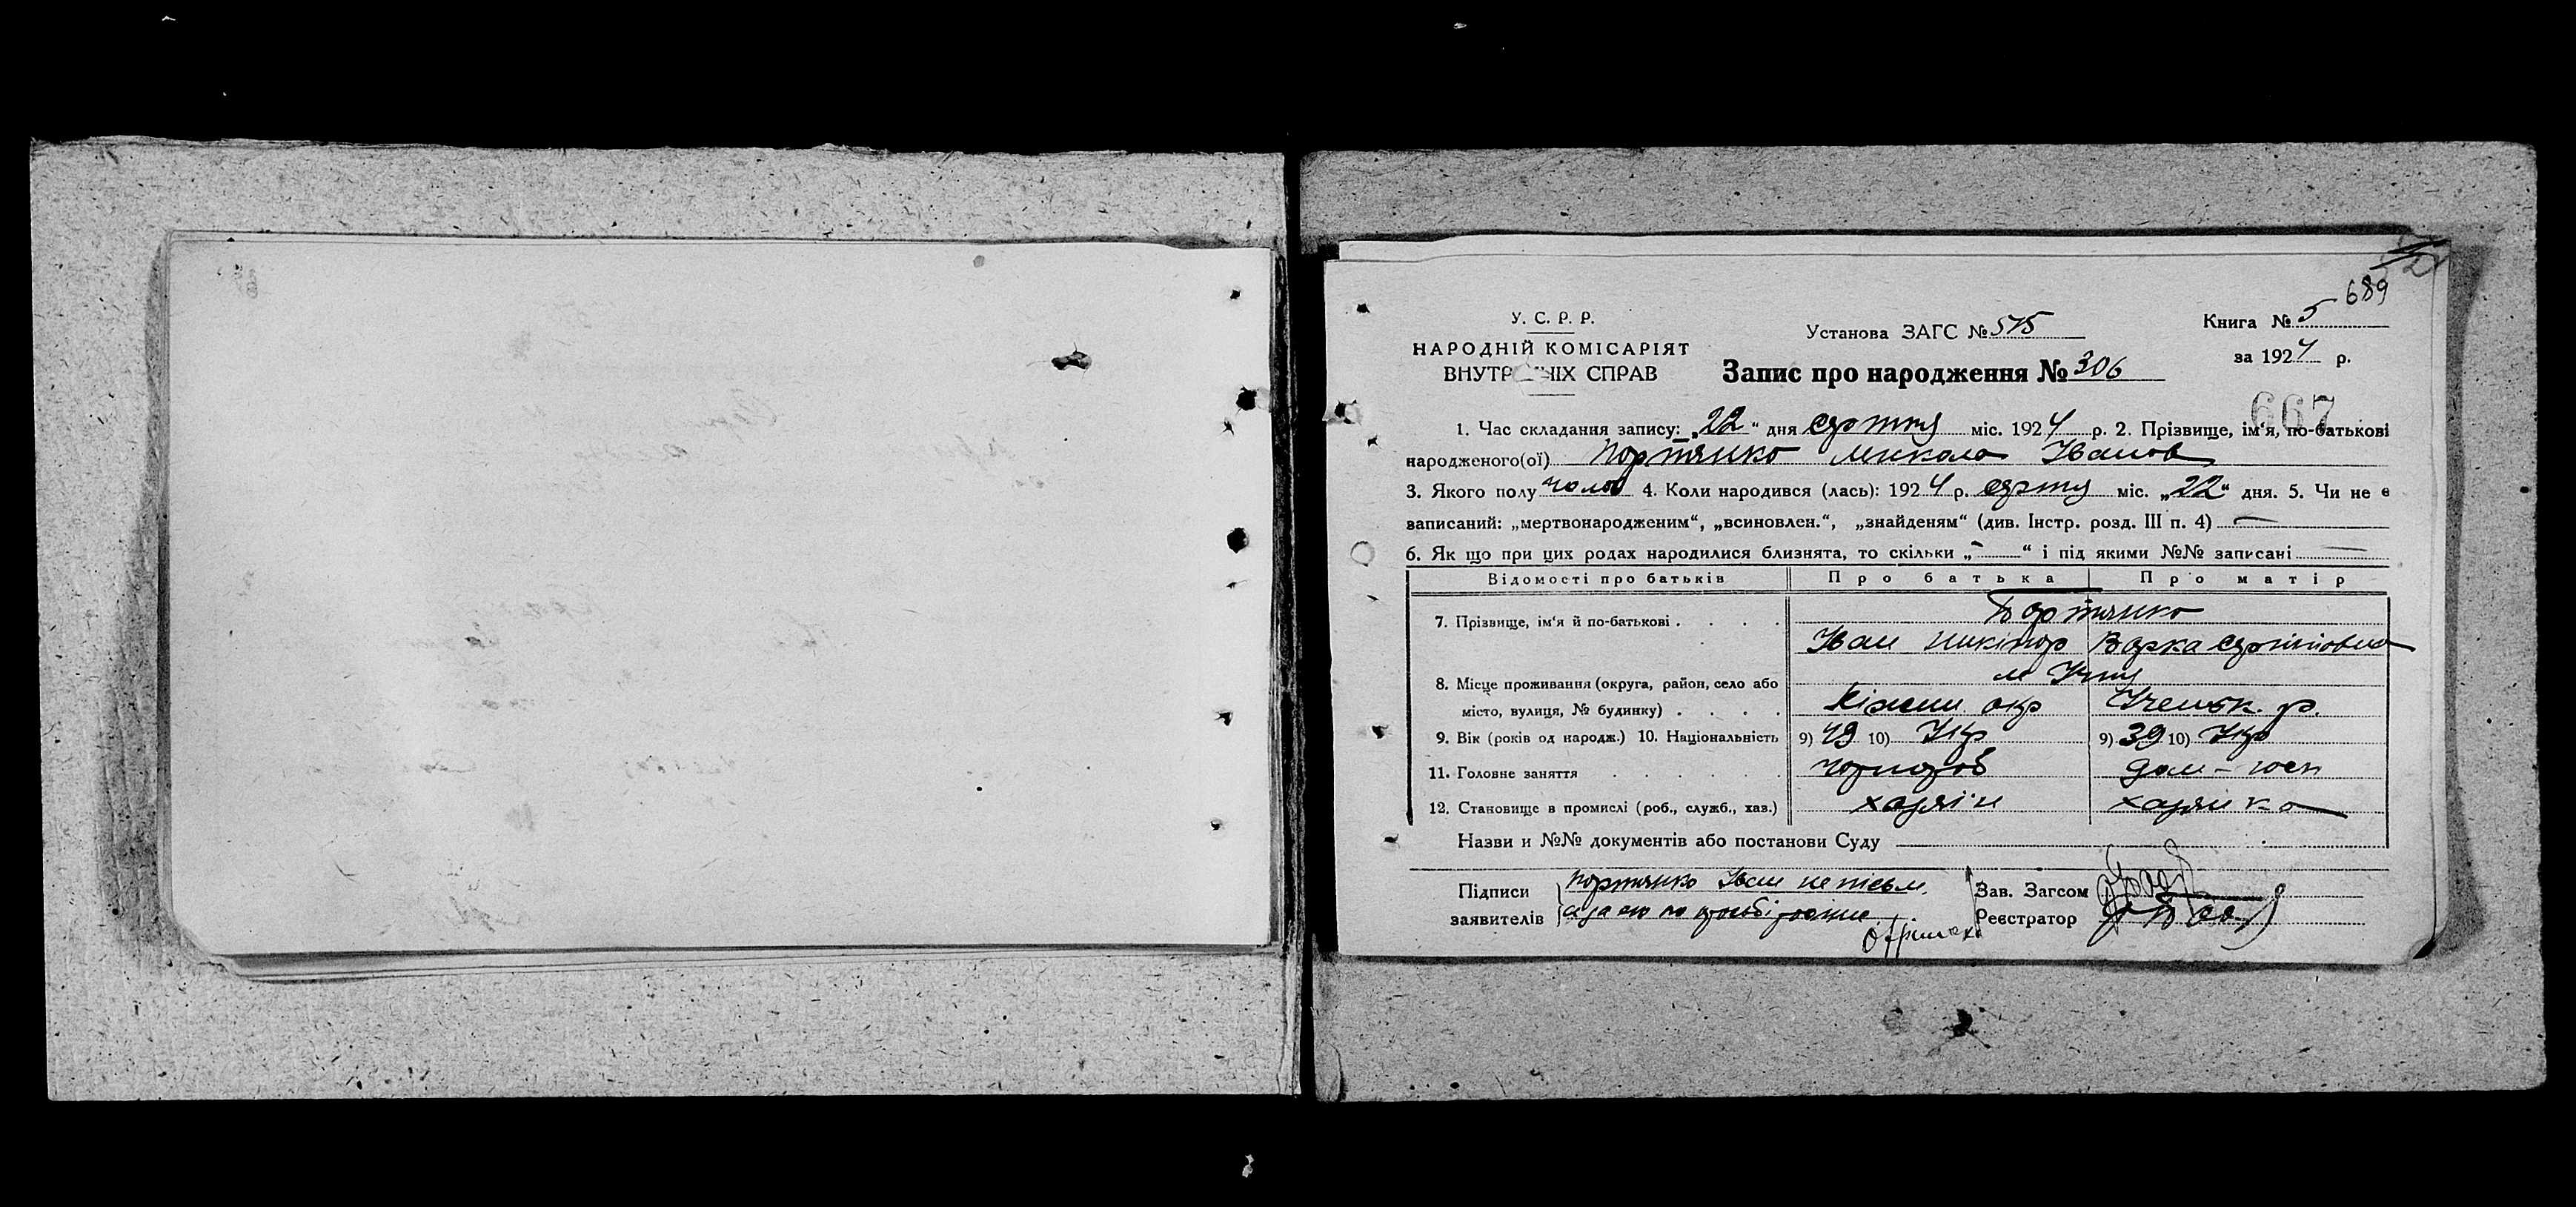 689
У. С. Р. Р.
НАРОДНІЙ КОМІСАРІЯТ
ВНУТР ІХ СПРАВ
Установа ЗАГС № 515
Запис про народження № 306
Книга № 5
за 1924 р.
667
1. Час складання запису: „22“ дня серпня міс. 1924 р. 2. Прізвище, ім'я, по-батькові
народженого(ої) Портянко Микола Іванов
3. Якого полу чолов 4. Коли народився (лась): 1924 р. серпня міс. „22“ дня. 5. Чи не є
записаний: „мертвонародженим“, „всиновлен.“, „знайденям“ (див. Інстр. розд. III п. 4) —
6. Як що при цих родах народилися близнята, то скільки „-“ і під якими №№ записані —
Відомості про батьків Про батька Про матір
7. Прізвище, ім'я й по-батькові . . . . Портянко
Іван Никіпор Варка
8. Місце проживання (округа, район, село або м
місто, вулиця, № будинку) . . . . окр р.
9. Вік (років од народж.) 10. Національність 9) 49 10) Укр 9) 39 10) Укр
11. Головне заняття . . . . . . дом-госп
12. Становище в промислі (роб., служб., хаз.) хазяїн хазяйка
Назви и №№ документів або постанови Суду
Підписи Портянко Іван неписьм. Зав. Загсом
заявителів Реєстратор